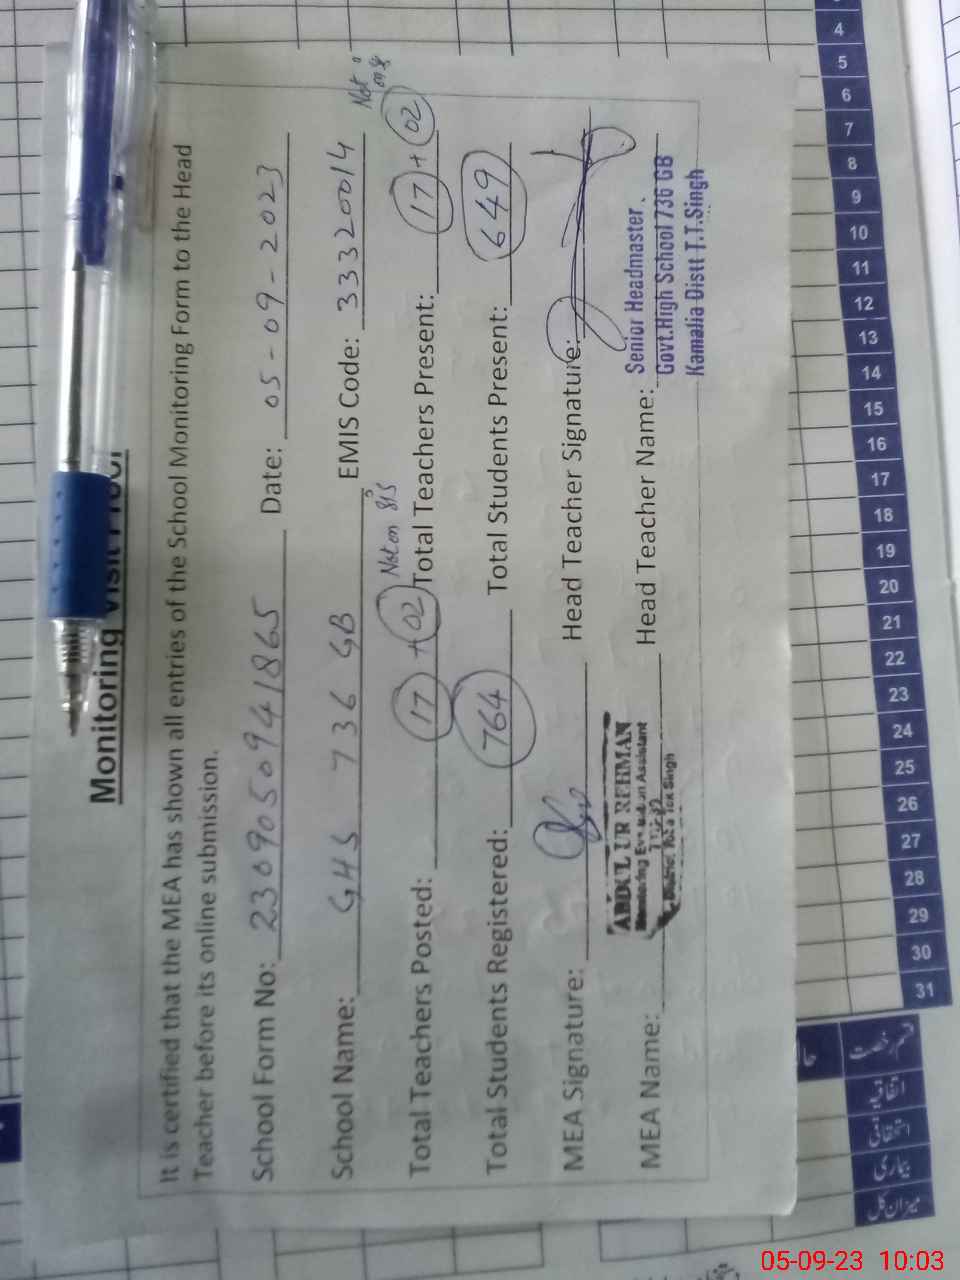 Monitoring Visit Proof
It is certified that the MEA has shown all entries of the School Monitoring Form to the Head
Teacher before its online submission.
School Form No: 230905094 1865 Date: 05-09-2023
School Name: GHS 736 GB EMIS Code: 33320014
Total Teachers Posted: 17 + 02 Not on SIS Total Teachers Present: 17 + 02 Not on
Total Students Registered: 764 Total Students Present: 649
MEA Signature: Head Teacher Signature:
MEA Name: ABDUL UR REHMAN Head Teacher Name: Senior Headmaster,
Monitoring Evaluation Assistant Govt.High School 736 GB
District Toba Tek Singh Kamalia Distt T.T.Singh
4
5
6
7
8
9
10
11
12
13
14
15
16
17
18
19
20
21
22
23
24
25
26
27
28
29
30
31
قسم رخصت
اتفاقیہ
استحقاقی
بیماری
میزان کل
05-09-23 10:03